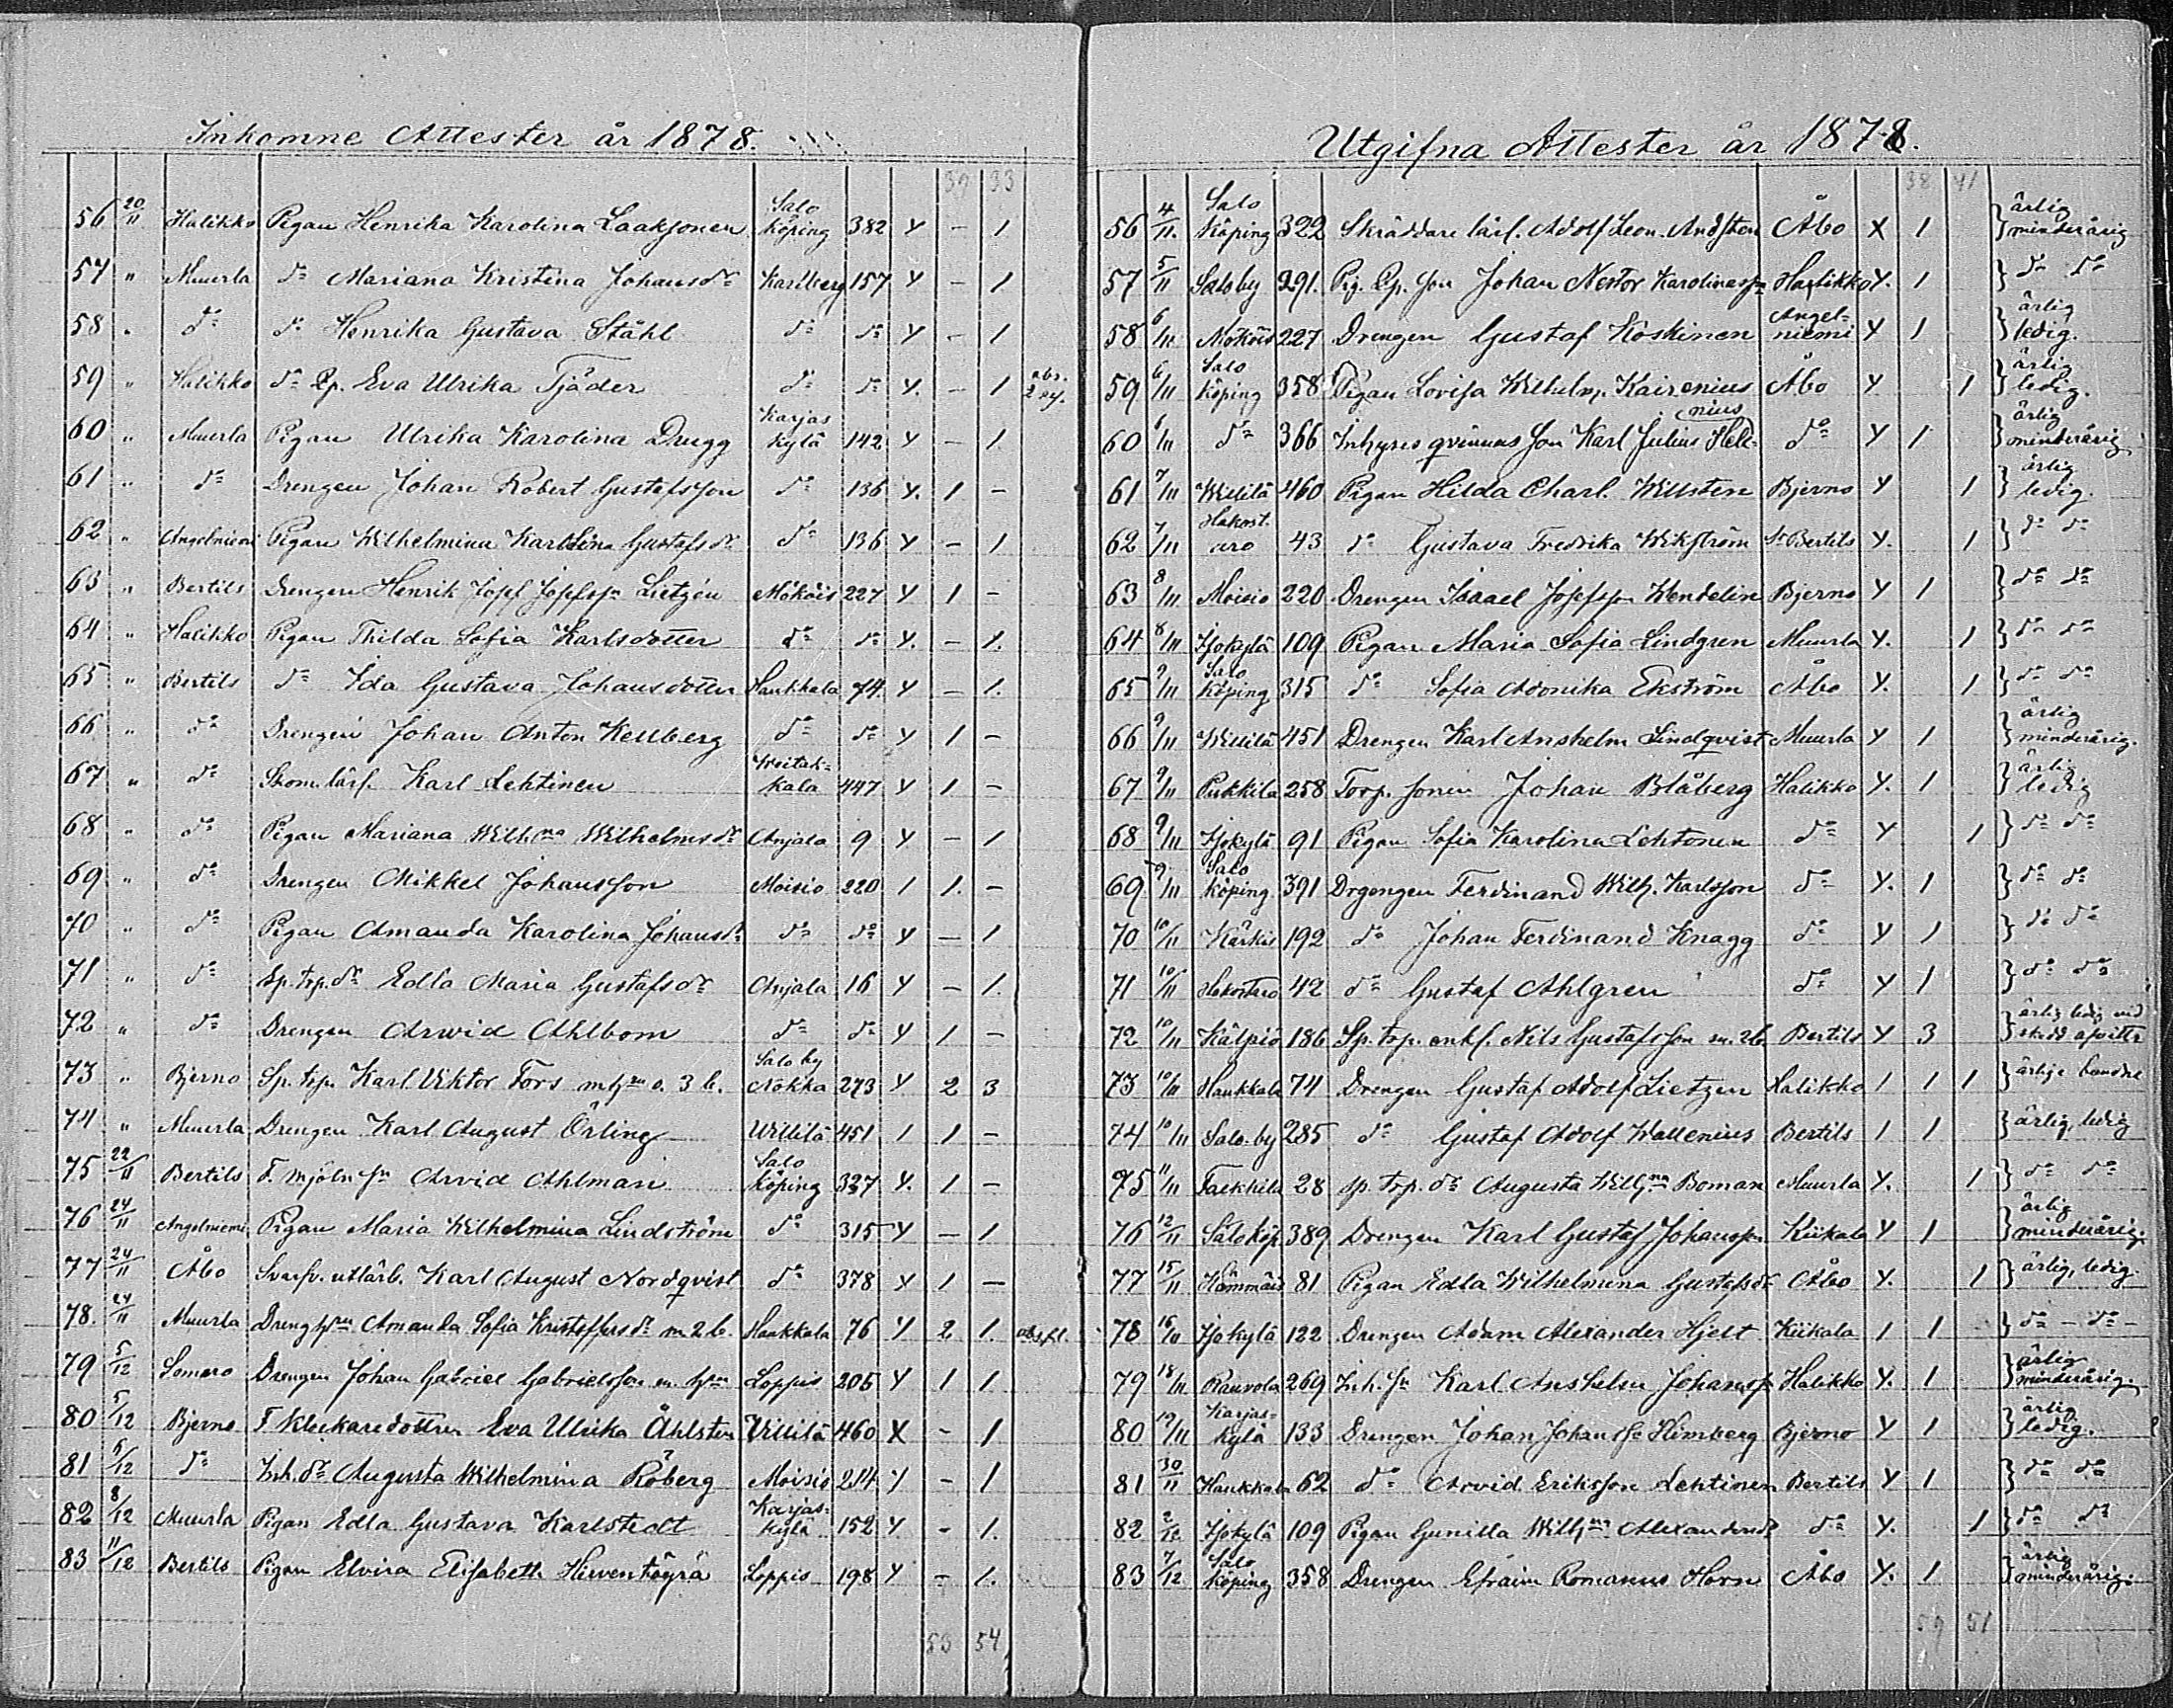 Inkomne Attester år 1878.
39 33
56 20/11 Halikko Pigan Henrika Karolina Laaksonen Salo köping 382 Y – 1
57 " Muurla do Mariana Kristina Johansdr Karlberg 157 Y – 1
58 " do do Henrika Gustava Ståhl do do Y – 1
59 " Halikko do Ep. Eva Ulrika Tjäder do do Y. – 1
60 " Muurla Pigan Ulrika Karolina Drugg Karjaskylä 142 Y – 1.
61 " do Drengen Johan Robert Gustafsson do 136 Y. 1 –
62 " Angelniemi Pigan Wilhelmina Karolina Gustafsdr do 136 Y – 1
63 " Bertils Drengen Henrik Josef Josefsson Lietzén Mököis 227 Y 1 –
64 " Halikko Pigan Thilda Sofia Karlsdotter do do Y. – 1.
65 " Bertils do Ida Gustava Johansdotter Haukkala 74. Y – 1.
66 " do Drengen Johan Anton Kellberg do do Y 1 –
67 " do Skom. lärl. Karl Lehtinen kala 447 Y 1 –
68 " do Pigan Mariana Wilhna Wilhelmsdr Anjala 9 Y – 1
69 " do Drengen Mikkel Johansson Moisio 220 1 1. –
70 " do Pigan Amanda Karolina Johansdr do do Y – 1
71 " do Sp. trp. dr Edla Maria Gustafsdr Anjala 16 Y – 1.
72 " do Drengen Arwid Ahlbom do do Y 1 –
73 " Bjerno Sp. trp. Karl Viktor Fors m hru o. 3 b. Salo by Nokka 273 Y. 2 3
74 " Muurla Drengen Karl August Örling Uitilä 451 1 1 –
75 22/11 Bertils F. mjöln. sn Arvid Ahlman Salo köping 327 Y. 1 –
76 24/11 Angelniemi Pigan Maria Wilhelmina Lindström do 315 Y – 1
77 24/11 Åbo Svarfv. utlärb. Karl August Nordqvist do 378 Y 1 –
78. 24/11 Muurla Dreng hru Amanda Sofia Kristoffersdr m 2 b. Haukkala 76 Y 2 1.
79 5/12 Somero Drengen Johan Gabriel Gabrielsson m. hru Loppis 205 Y 1 1
80 5/12 Bjerno F. Klockaredottren Eva Ulrika Åhlsten Uitilä 460 X – 1
81 5/12 do Inh. dr Augusta Wilhelmina Röberg Moisio 214 Y – 1
82 8/12 Muurla Pigan Edla Gustava Karlstedt Karjaskylä 152 Y. – 1.
83 11/12 Bertils Pigan Elvira Elisabeth Hirventöyrä Loppis 198 Y – 1.
53 54
Utgifna Attester år 1878.
38 41
56 4/11. Salo köping 322 Skräddare lärl. Adolf Leon. Andsten Åbo X 1 } ärlig minderårig
57 5/11 Salo by 291. Pig. Ep. son Johan Nestor Karolinason Halikko Y. 1 } do do
58 6/11 Mököis 227 Drengen Gustaf Koskinen Angelniemi Y 1 } ärlig ledig.
59 6/11 Salo köping 358 Pigan Lovisa Wilhelm. Kairenius Åbo Y 1 } ärlig ledig.
60 6/11 do 366 Inhyses qvinnas son Karl Julius Hellenius do Y 1 } ärlig minderårig
61 7/11 Uitilä 460 Pigan Hilda Charl. Willsten Bjerno Y 1 } ärlig ledig.
62 7/11 Hakostaro 43 do Gustava Fredrika Wikström St Bertils Y. 1 } do do
63 8/11 Moisio 220 Drengen Isaael Josefsson Wendelin Bjerno Y 1 } do do
64 8/11 Isokylä 109 Pigan Maria Sofia Lindgren Muurla Y. 1 } do do
65 9/11 Salo köping 315 do Sofia Adonika Ekström Åbo Y. 1 } do do
66 9/11 Uitilä 451 Drengen Karl Anshelm Lindqvist Muurla Y 1 } ärlig minderårig.
67 9/11 Pukkila 258 Torp. sonen Johan Blåberg Halikko Y. 1 } ärlig ledig
68 9/11 Isokylä 91 Pigan Sofia Karolina Lehtonen do Y 1 } do do
69 9/11 Salo köping 391 Drgengen Ferdinand Wilh. Karlsson do Y. 1 } do do
70 10/11 Kärkis 192 do Johan Ferdinand Knagg do Y 1 } do do
71 10/11 Hakostaro 42 do Gustaf Ahlgren do Y 1 } do do
72 10/11 Kälpiö 186 Sp. trp. enkl. Nils Gustafsson m. 2 b. Bertils Y 3 } ärlig ledig
73 10/11 Haukkala 74 Drengen Gustaf Adolf Lietzen Halikko 1 1 1 } ärlige
74 10/11 Salo. by 285 do Gustaf Adolf Wallenius Bertils 1 1 } ärlig, ledig
75 11/11 Takkila 28 sp. trp. dr Augusta Wilhna Boman Muurla Y. 1 } do do
76 12/11 Salo köp. 389 Drengen Karl Gustaf Johansson Kiikala Y 1 } ärlig minderårig.
77 15/11 Hämmäis 81 Pigan Edla Wilhelmina Gustafsdr Åbo Y. 1 } ärlig, ledig.
78 16/11 Isokylä 122 Drengen Adam Alexander Hjelt Kiikala 1 1 } do – do –
79 18/11 Rauvola 269 Inh. sn Karl Anshelm Johansson Halikko Y. 1 } ärlig minderårig.
80 19/11 Karjaskylä 133 Drengen Johan Johansson Himberg Bjerno Y 1 } ärlig ledig.
81 30/11 Haukkala 62 do Arvid Eriksson Lehtinen Bertils Y 1 } do do
82 2/12 Isokylä 109 Pigan Gunilla Wilhna Alexandersdr do Y. 1 } do do
83 7/12 Salo köping 358 Drengen Efraim Romanus Horn Åbo Y. 1 } ärlig minderårig.
59 51